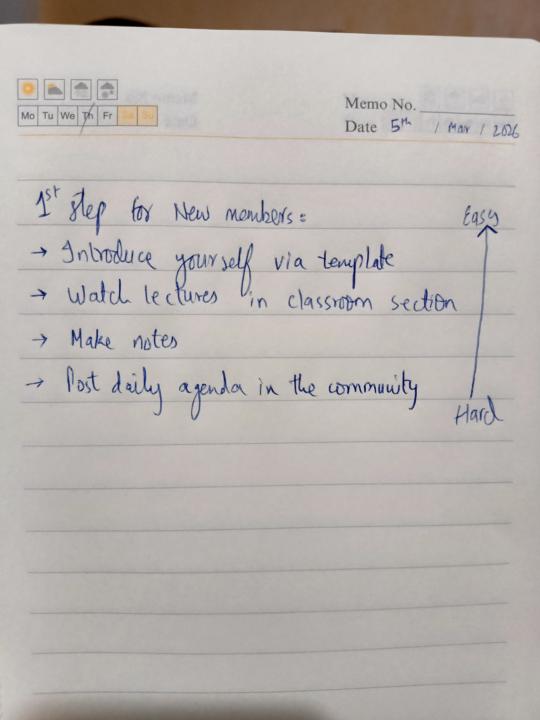 Mo Tu We Th Fr Sa Su
Memo No.
Date 5th / Mar / 2026
1st step for New members:
Easy
→ Introduce yourself via template
→ Watch lectures in classroom section
→ Make notes
→ Post daily agenda in the community
Hard